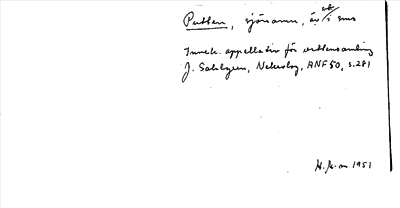 Putten, sjönamn, äv. i sms
Inneh. appellativ för vattensamling
J. Sahlgren, Nekrolog, ANF 50, s. 281
1951